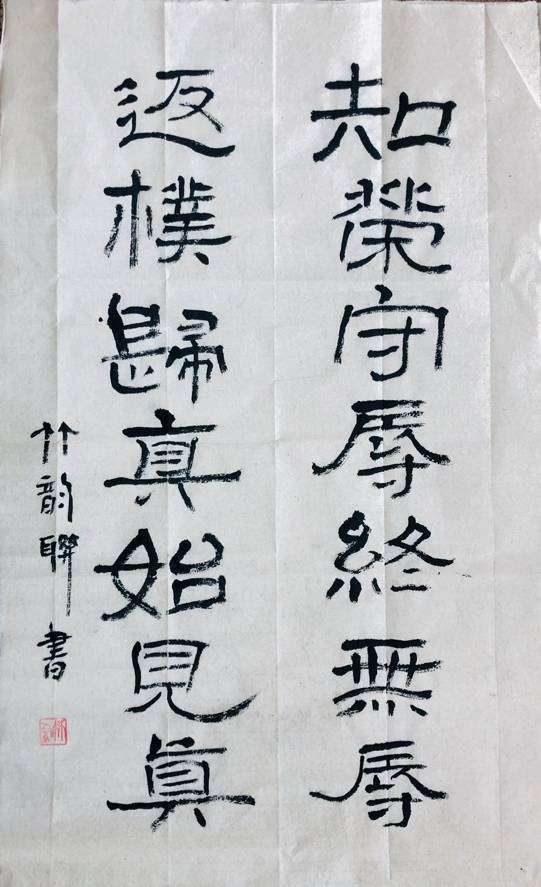 知榮守辱終無辱
返樸歸真始見真
竹韵聯書